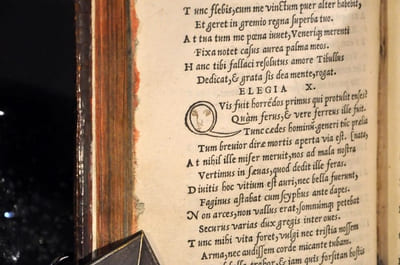 T unc flebis, cum me vinctum puer alter habebit,
Et geret in gremio regna superba tuo.
A t tua tum me pœna iuuet, Veneriq; merenti
Fixa notet casus aurea palma meos.
H anc tibi fallaci resolutus amore Tibullus
Dedicat, & grata sis dea mente, rogat.
ELEGIA X.
Q Vis fuit horrēdos primus qui protulit enses?
Quàm ferus, & verè ferreus ille fuit.
Tunc cædes hominū generi tūc prælia
Tum breuior diræ mortis aperta via est. [nata,
A t nihil ille miser meruit, nos ad mala nostra
Vertimus in sæuas, quod dedit ille feras.
D iuitis hoc vitium est auri, nec bella fuerunt,
Faginus astabat cum scyphus ante dapes.
N on arces, non vallus erat, somnúmq; petebat
Securus varias dux gregis inter oues.
T unc mihi vita foret, vulgi nec tristia nossem
Arma, nec audissem corde micante tubam.
bella trahor, & iam quis forsitan hostis